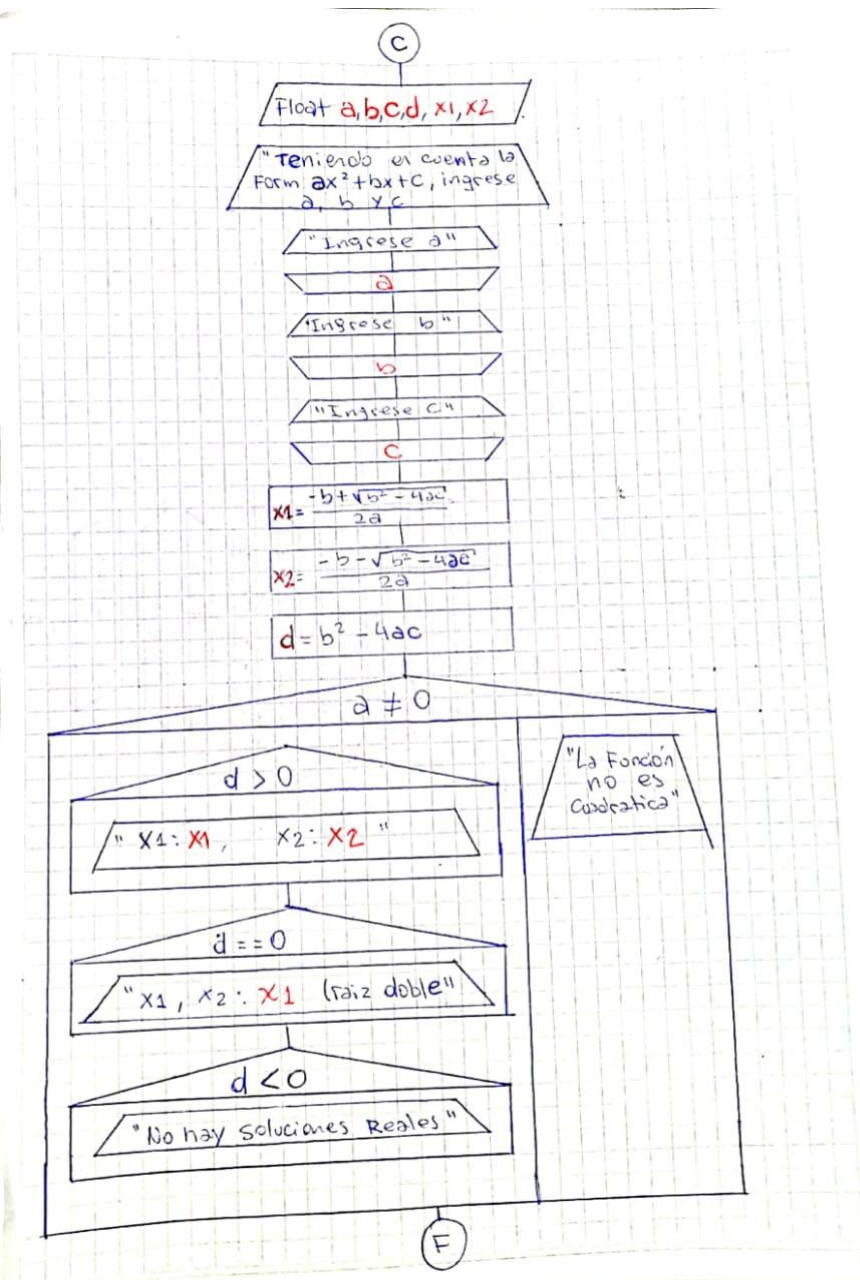 C
Float a,b,c,d, x1, x2
"Teniendo en cuenta la
Form. ax² + bx + c, ingrese
a, b y c
"Ingrese a"
a
"Ingrese b"
b
"Ingrese C"
C
x1 = -b + √b² - 4ac / 2a
x2 = -b - √b² - 4ac / 2a
d = b² - 4ac
a ≠ 0
d > 0
" X1: X1, X2: X2 "
d == 0
"X1, X2: X1 (raiz doble"
d < 0
"No hay soluciones Reales"
"La Función
no es
Cuadratica"
F